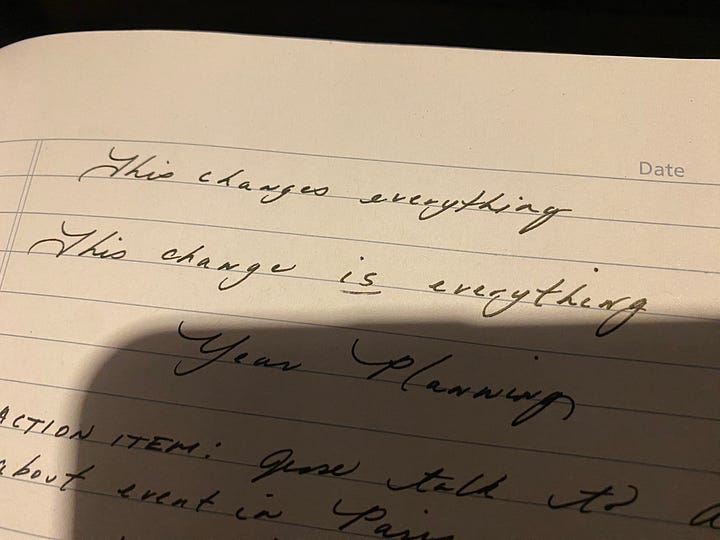 Date
This changes everything
This change is everything
Year Planning
ACTION ITEM: talk to
about event in Paris